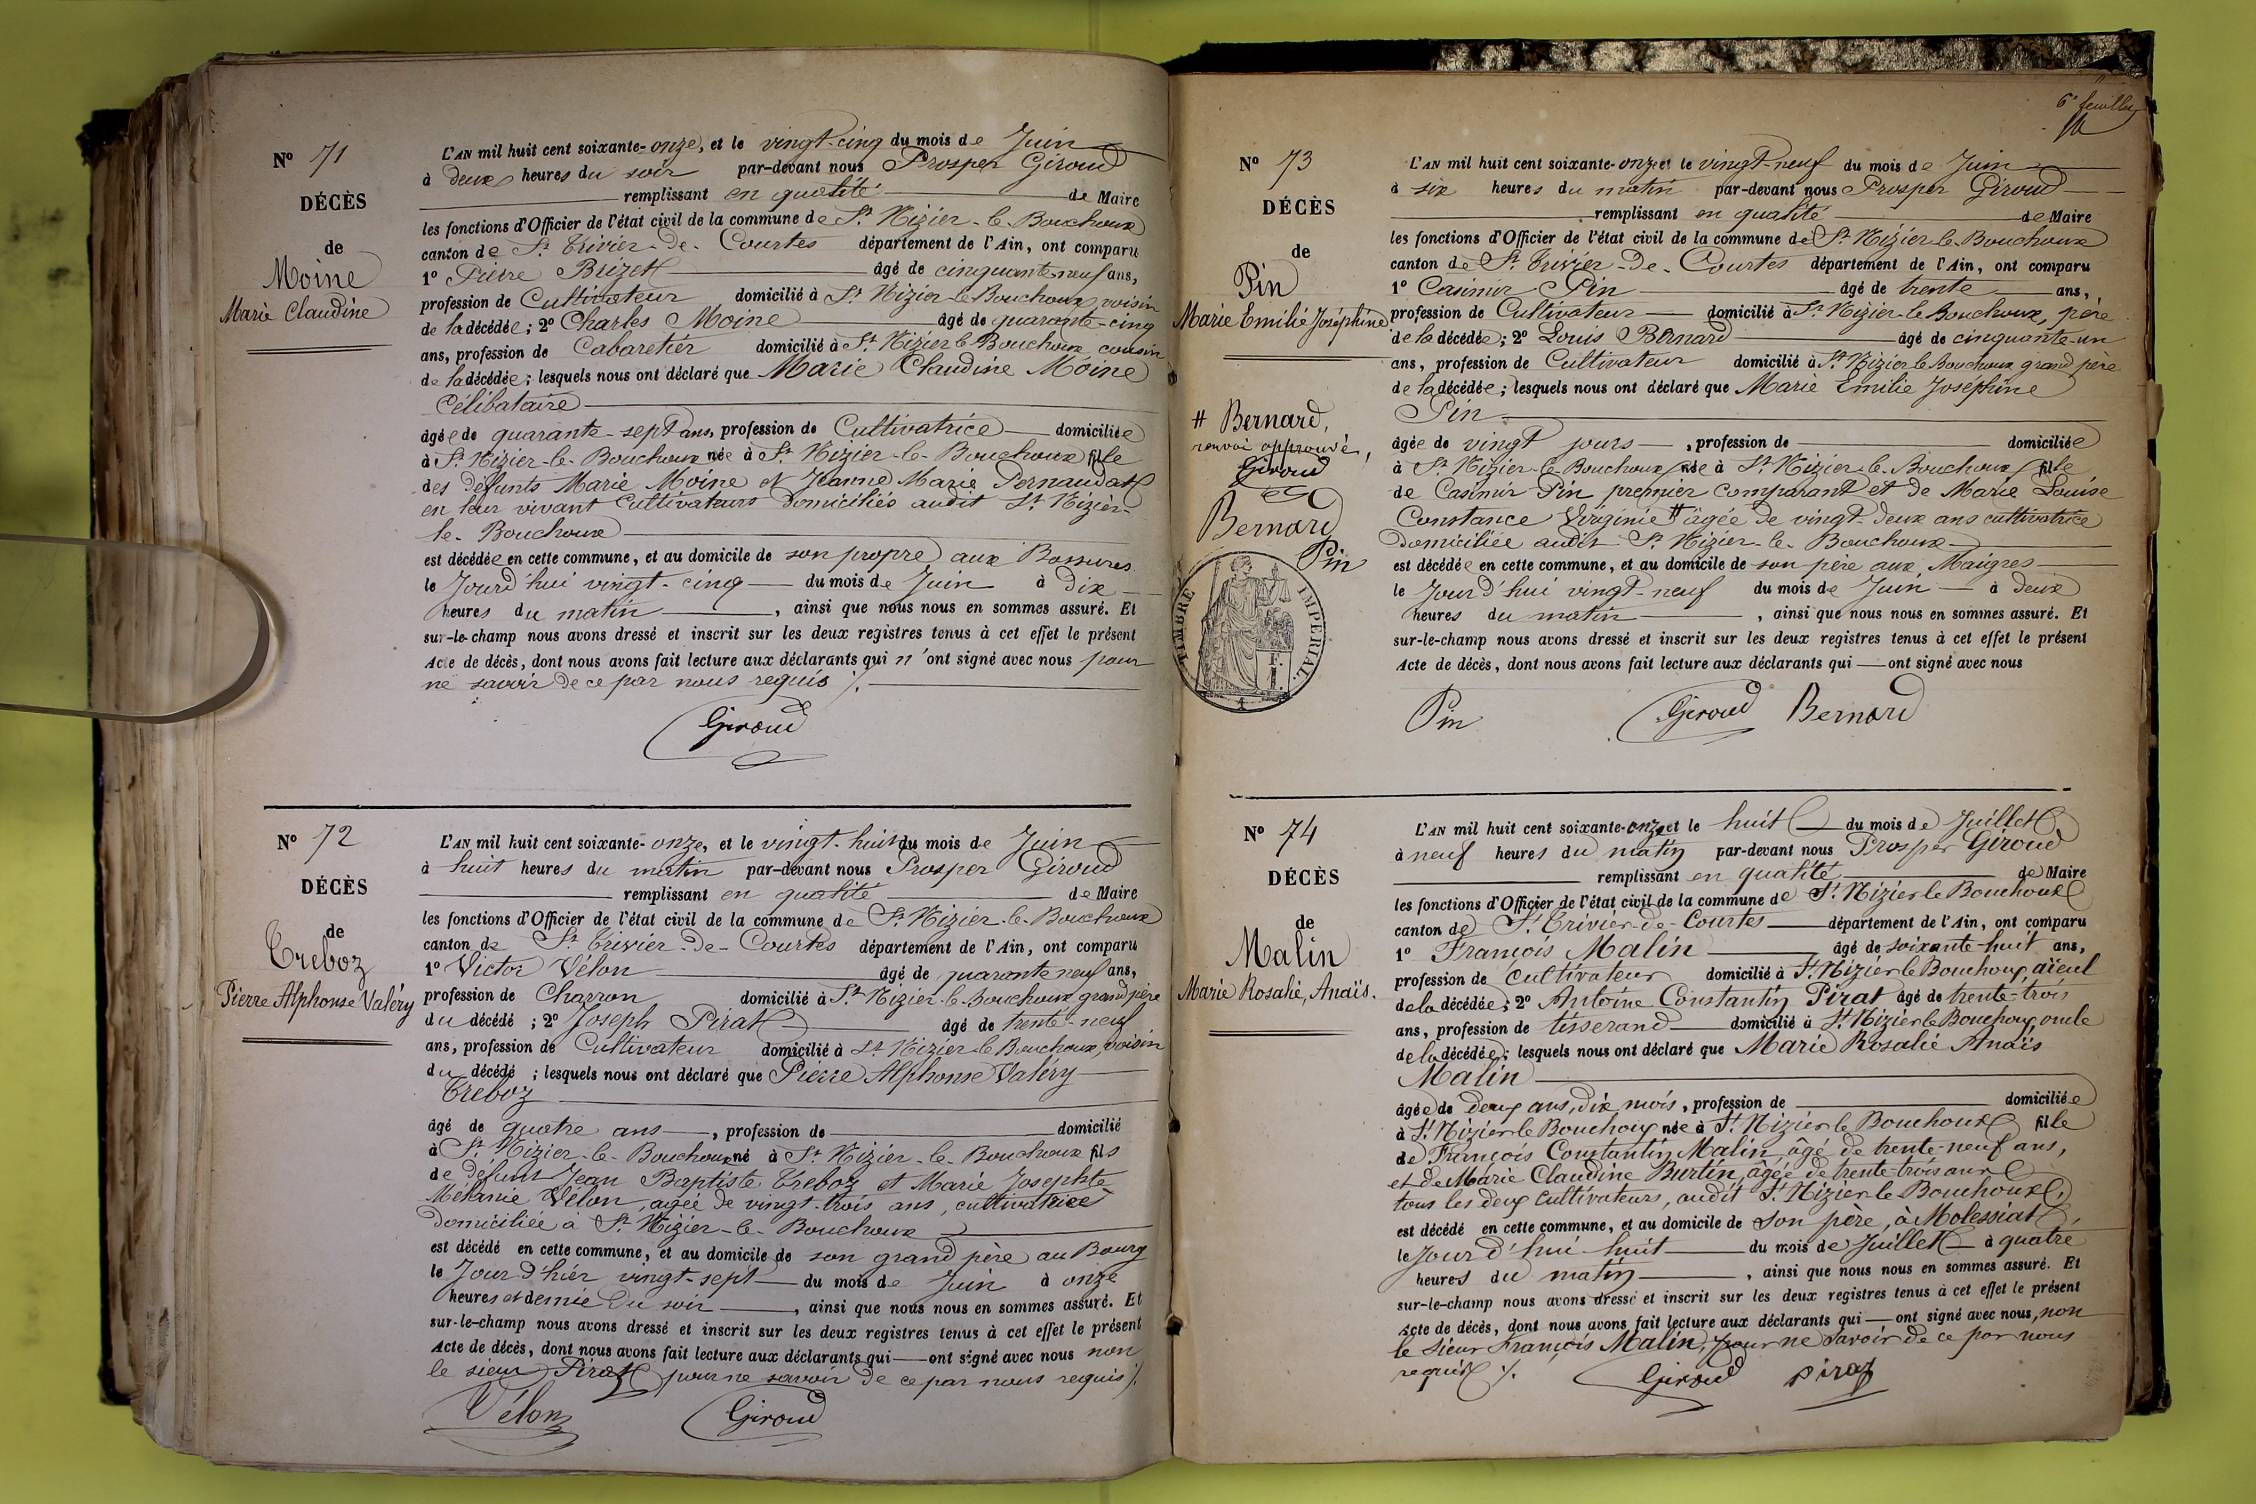 N° 71
DÉCÈS
de
Moine
Marie Claudine
L'AN mil huit cent soixante-onze, et le vingt-cinq du mois de Juin
à deux heures du soir par-devant nous Prosper Giroud
remplissant en qualité de Maire
les fonctions d'Officier de l'état civil de la commune de St Nizier-le-Bouchoux
canton de St Trivier-de-Courtes département de l'Ain, ont comparu
1° Pierre Brizet âgé de cinquante-neuf ans,
profession de Cultivateur domicilié à St Nizier-le-Bouchoux, voisin
de la décédée; 2° Charles Moine âgé de quarante-cinq
ans, profession de Cabaretier domicilié à St Nizier le Bouchoux cousin
de la décédée; lesquels nous ont déclaré que Marie Claudine Moine
Célibataire
âgée de quarante-sept ans, profession de Cultivatrice domiciliée
à St Nizier-le-Bouchoux née à St Nizier-le-Bouchoux fille
des défunts Marie Moine et Jeanne Marie Pernaudat
en leur vivant Cultivateurs domiciliés audit St Nizier-
le-Bouchoux
est décédée en cette commune, et au domicile de son propre aux Bossures
le Jourd'hui vingt-cinq du mois de Juin à dix
heures du matin, ainsi que nous nous en sommes assuré. Et
sur-le-champ nous avons dressé et inscrit sur les deux registres tenus à cet effet le présent
Acte de décès, dont nous avons fait lecture aux déclarants qui n'ont signé avec nous pour
ne savoir de ce par nous requis ./.
Giroud
N° 72
DÉCÈS
de
Treboz
Pierre Alphonse Valéry
L'AN mil huit cent soixante-onze, et le vingt-huit du mois de Juin
à huit heures du matin par-devant nous Prosper Giroud
remplissant en qualité de Maire
les fonctions d'Officier de l'état civil de la commune de St Nizier-le-Bouchoux
canton de St Trivier-de-Courtes département de l'Ain, ont comparu
1° Victor Vélon âgé de quarante neuf ans,
profession de Charron domicilié à St Nizier-le-Bouchoux grand père
du décédé; 2° Joseph Pirat âgé de trente-neuf
ans, profession de Cultivateur domicilié à St Nizier-le-Bouchoux, voisin
du décédé; lesquels nous ont déclaré que Pierre Alphonse Valéry
Treboz
âgé de quatre ans, profession de domicilié
à St Nizier-le-Bouchoux né à St Nizier-le-Bouchoux fils
de défunt Jean Baptiste Treboz et Marie Josephte
Mélanie Vélon, agée de vingt-trois ans, cultivatrice
domiciliée à St Nizier-le-Bouchoux
est décédé en cette commune, et au domicile de son grand père au Bourg
le Jour d'hier vingt-sept du mois de Juin à onze
heures et demie du soir, ainsi que nous nous en sommes assuré. Et
sur-le-champ nous avons dressé et inscrit sur les deux registres tenus à cet effet le présent
Acte de décès, dont nous avons fait lecture aux déclarants qui ont signé avec nous non
le sieur Pirat pour ne savoir de ce par nous requis ./.
Vélon Giroud
6e feuillet
N° 73
DÉCÈS
de
Pin
Marie Emilie Joséphine
# Bernard,
renvoi approuvé,
Giroud
Bernard
Pin
TIMBRE IMPERIAL
L'AN mil huit cent soixante-onze et le vingt-neuf du mois de Juin
à six heures du matin par-devant nous Prosper Giroud
remplissant en qualité de Maire
les fonctions d'Officier de l'état civil de la commune de St Nizier-le-Bouchoux
canton de St Trivier-de-Courtes département de l'Ain, ont comparu
1° Casimir Pin âgé de trente ans,
profession de Cultivateur domicilié à St Nizier-le-Bouchoux, père
de la décédée; 2° Louis Bernard âgé de cinquante-un
ans, profession de Cultivateur domicilié à St Nizier le Bouchoux grand père
de la décédée; lesquels nous ont déclaré que Marie Emilie Joséphine
Pin
âgée de vingt jours, profession de domiciliée
à St Nizier-le-Bouchoux née à St Nizier-le-Bouchoux fille
de Casimir Pin premier comparant et de Marie Louise
Constance Virginie # âgée de vingt-deux ans cultivatrice
domiciliée audit St Nizier-le-Bouchoux
est décédée en cette commune, et au domicile de son père aux Maigres
le Jour d'hui vingt-neuf du mois de Juin à deux
heures du matin, ainsi que nous nous en sommes assuré. Et
sur-le-champ nous avons dressé et inscrit sur les deux registres tenus à cet effet le présent
Acte de décès, dont nous avons fait lecture aux déclarants qui ont signé avec nous
Pin Giroud Bernard
N° 74
DÉCÈS
de
Malin
Marie Rosalie, Anaïs.
L'AN mil huit cent soixante-onze et le huit du mois de Juillet
à neuf heures du matin par-devant nous Prosper Giroud
remplissant en qualité de Maire
les fonctions d'Officier de l'état civil de la commune de St Nizier le Bouchoux
canton de St Trivier-de-Courtes département de l'Ain, ont comparu
1° François Malin âgé de soixante-huit ans,
profession de cultivateur domicilié à St Nizier le Bouchoux, aïeul
de la décédée; 2° Antoine Constantin Pirat âgé de trente-trois
ans, profession de tisserand domicilié à St Nizier le Bouchoux, oncle
de la décédée; lesquels nous ont déclaré que Marie Rosalie Anaïs
Malin
âgée de deux ans, dix mois, profession de domiciliée
à St Nizier le Bouchoux née à St Nizier le Bouchoux fille
de François Constantin Malin, âgé de trente-neuf ans,
et de Marie Claudine Burtin, âgée de trente-trois ans
tous les deux cultivateurs, audit St Nizier le Bouchoux,
est décédé en cette commune, et au domicile de son père, à Molessiat,
le Jour d'hui huit du mois de Juillet à quatre
heures du matin, ainsi que nous nous en sommes assuré. Et
sur-le-champ nous avons dressé et inscrit sur les deux registres tenus à cet effet le présent
Acte de décès, dont nous avons fait lecture aux déclarants qui ont signé avec nous, non
le Sieur François Malin, pour ne savoir de ce par nous
requis ./.
Giroud Pirat